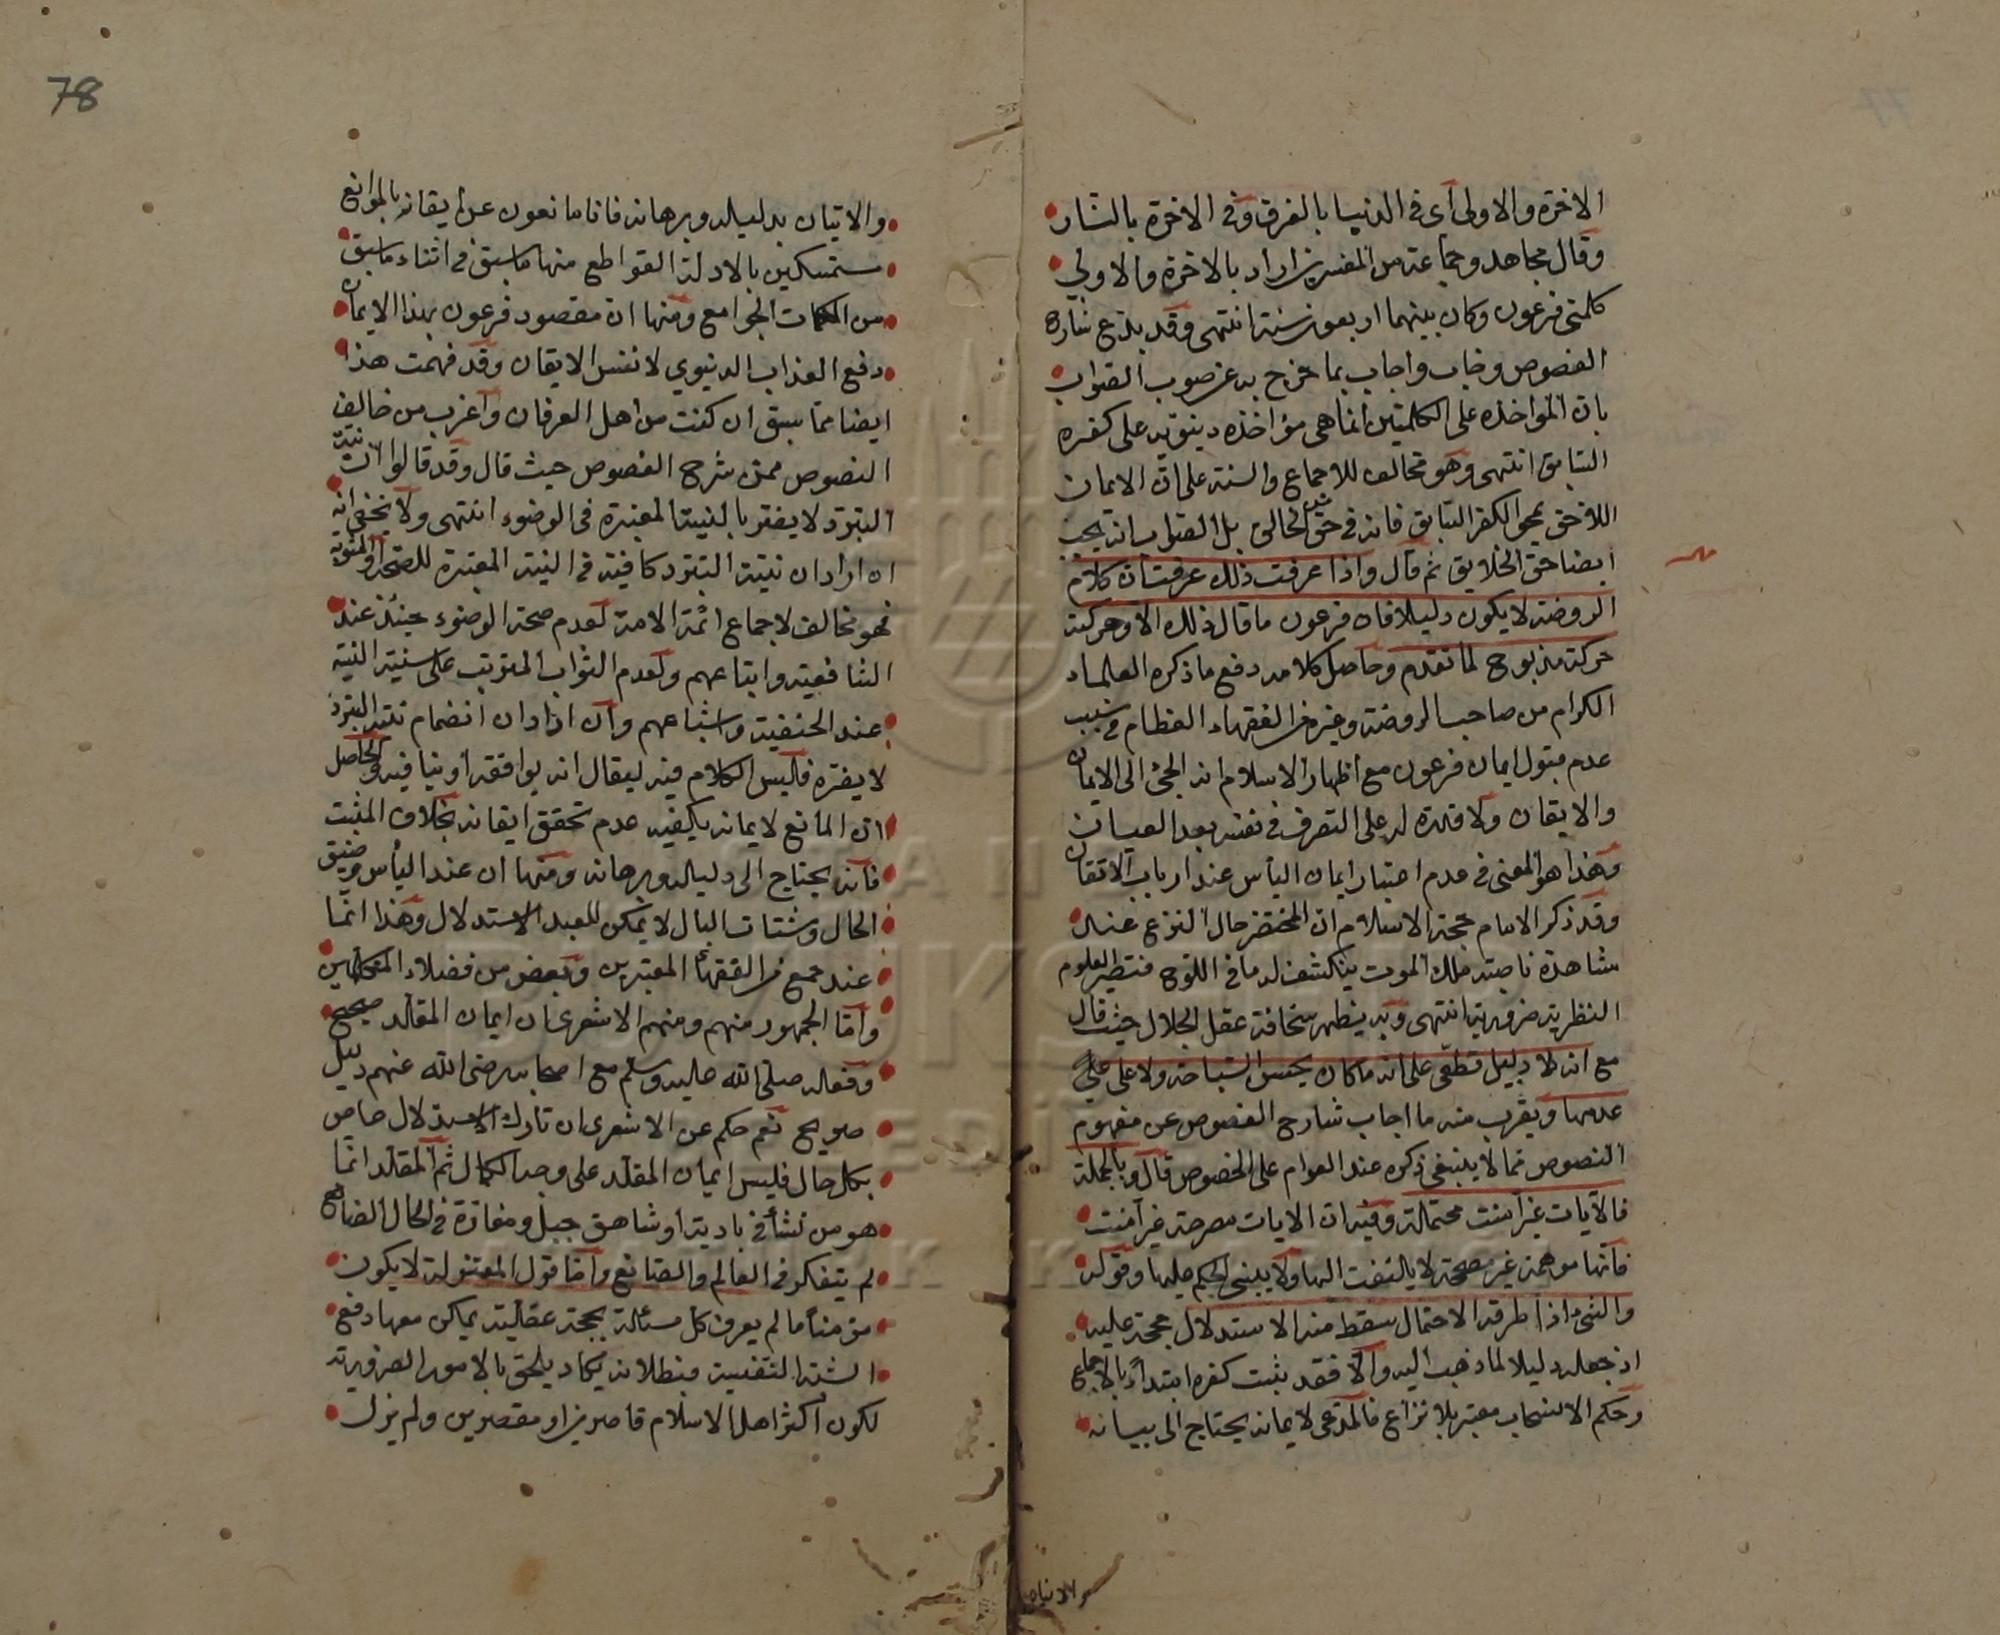 الاخرة والاولى أى فى الدنيا بالغرق وفى الاخرة بالنار
وقال مجاهد وجماعة من المفسرين اراد بالاخرة والاولي
كلمتى فرعون وكان بينهما اربعون سنة انتهى وقد بلغ شارح
الفصوص وخاب واجاب بما خرج به عن صوب الصواب
بان المواخذة على الكلمتين انما هى مؤاخذة دينوية على كفره
السابق انتهى وهو مخالف للاجماع والسنة على ان الايمان
اللاحق يمحو الكفر السابق فانه فى حق الخالق بل الصواب انه يجب
ايضا حق الخلايق ثم قال واذا عرفت ذلك عرفت ان كلام
الروضة لا يكون دليلا فان فرعون ما قال ذلك الا وحركته
حركة مذبوح لما تقدم وحاصل كلامه دفع ما ذكره العلماء
الكرام من صاحب الروضة وغيره من الفقهاء العظام فى سبب
عدم قبول ايمان فرعون مع اظهار الاسلام انه الجئ الى الايمان
والايقان ولا قدرة له على التصرف فى نفسه بعد العيان
وهذا هو المعنى فى عدم اعتبار ايمان الياس عند ارباب الاتقان
وقد ذكر الامام حجة الاسلام ان المحتضر حال النزع عند
مشاهدة ناصية ملك الموت ينكشف له ما فى اللوح فتصير العلوم
النظرية ضرورية انتهى وبه يظهر سخافة عقل الجلال حيث قال
مع انه لا دليل قطعى على انه ما كان يحسن السباحة ولا على
عدمها ويقرب منه ما اجاب شارح الفصوص عن مفهوم
النصوص مما لا ينبغى ذكره عند العوام على الخصوص قال وبالجملة
فالآيات غير آمنت محتملة وفيه ان الايات مصرحة غير آمنت
فانها موهمة غير مصححة لا يلتفت اليها ولا يبنى الحكم عليها وقوله
والشئ اذا طرقه الاحتمال سقط منه الاستدلال حجة عليه
اذ جعله دليلا لما ذهب اليه والا فقد ثبت كفره ابتداءً بالاجماع
وحكم الاستصحاب معتبر بلا نزاع فالمدعى لايمانه يحتاج الى بيانه
والاتيان
78
والاتيان بدليله وبرهانه فانا مانعون عن ايقانه بالموانع
مستمسكين بالادلة القواطع منها ما سبق فى اثناء ما سبق
من الكلمات الجوامع ومنها ان مقصود فرعون بهذا الايمان
دفع العذاب الدنيوي لا نفس الايقان وقد فهمت هذا
ايضا مما سبق ان كنت من اهل العرفان وأغرب من خالف
النصوص ممن شرح الفصوص حيث قال وقد قالوا ان نية
التبرد لا يضر بالنية المعتبرة فى الوضوء انتهى ولا يخفى انه
ان اراد ان نية التبرد كافية فى النية المعتبرة للصحة او المثوبة
فهو مخالف لاجماع ائمة الامة لعدم صحة الوضوء حينئذ عند
الشافعية واتباعهم ولعدم الثواب المترتب على سنية النية
عند الحنفية واشباعهم وان اراد ان انضمام نية التبرد
لا يضره فليس الكلام فيه ليقال انه يوافقه أو ينافيه والحاصل
ان المانع لايمانه يكفيه عدم تحقق ايقانه بخلاف المثبت
فانه يحتاج الى دليله وبرهانه ومنها ان عند اليأس وضيق
الحال وشتات البال لا يمكن للعبد الاستدلال وهذا انما
عند جمع من الفقهاء المعتبرين وبعض من فضلاء المتكلمين
وأما الجمهور منهم ومنهم الاشعرى ان ايمان المقلد صحيح
وفعله صلى الله عليه وسلم مع اصحابه رضى الله عنهم دليل
صريح نعم حكم عن الاشعرى ان تارك الاستدلال عاص
بكل حال فليس ايمان المقلد على وجه الكمال ثم المقلد انما
هو من نشأ فى بادية أو شاهق جبل ومفازة فى الحال الضايع
لم يتفكر فى العالم والصانع وأما قول المعتزلة لا يكون
مؤمنا ما لم يعرف كل مسئلة بحجة عقلية يمكن معها دفع
الشبه فبطلانه يكاد يلحق بالامور الضرورية
لكون اكثر اهل الاسلام قاصرين او مقصرين ولم يزل